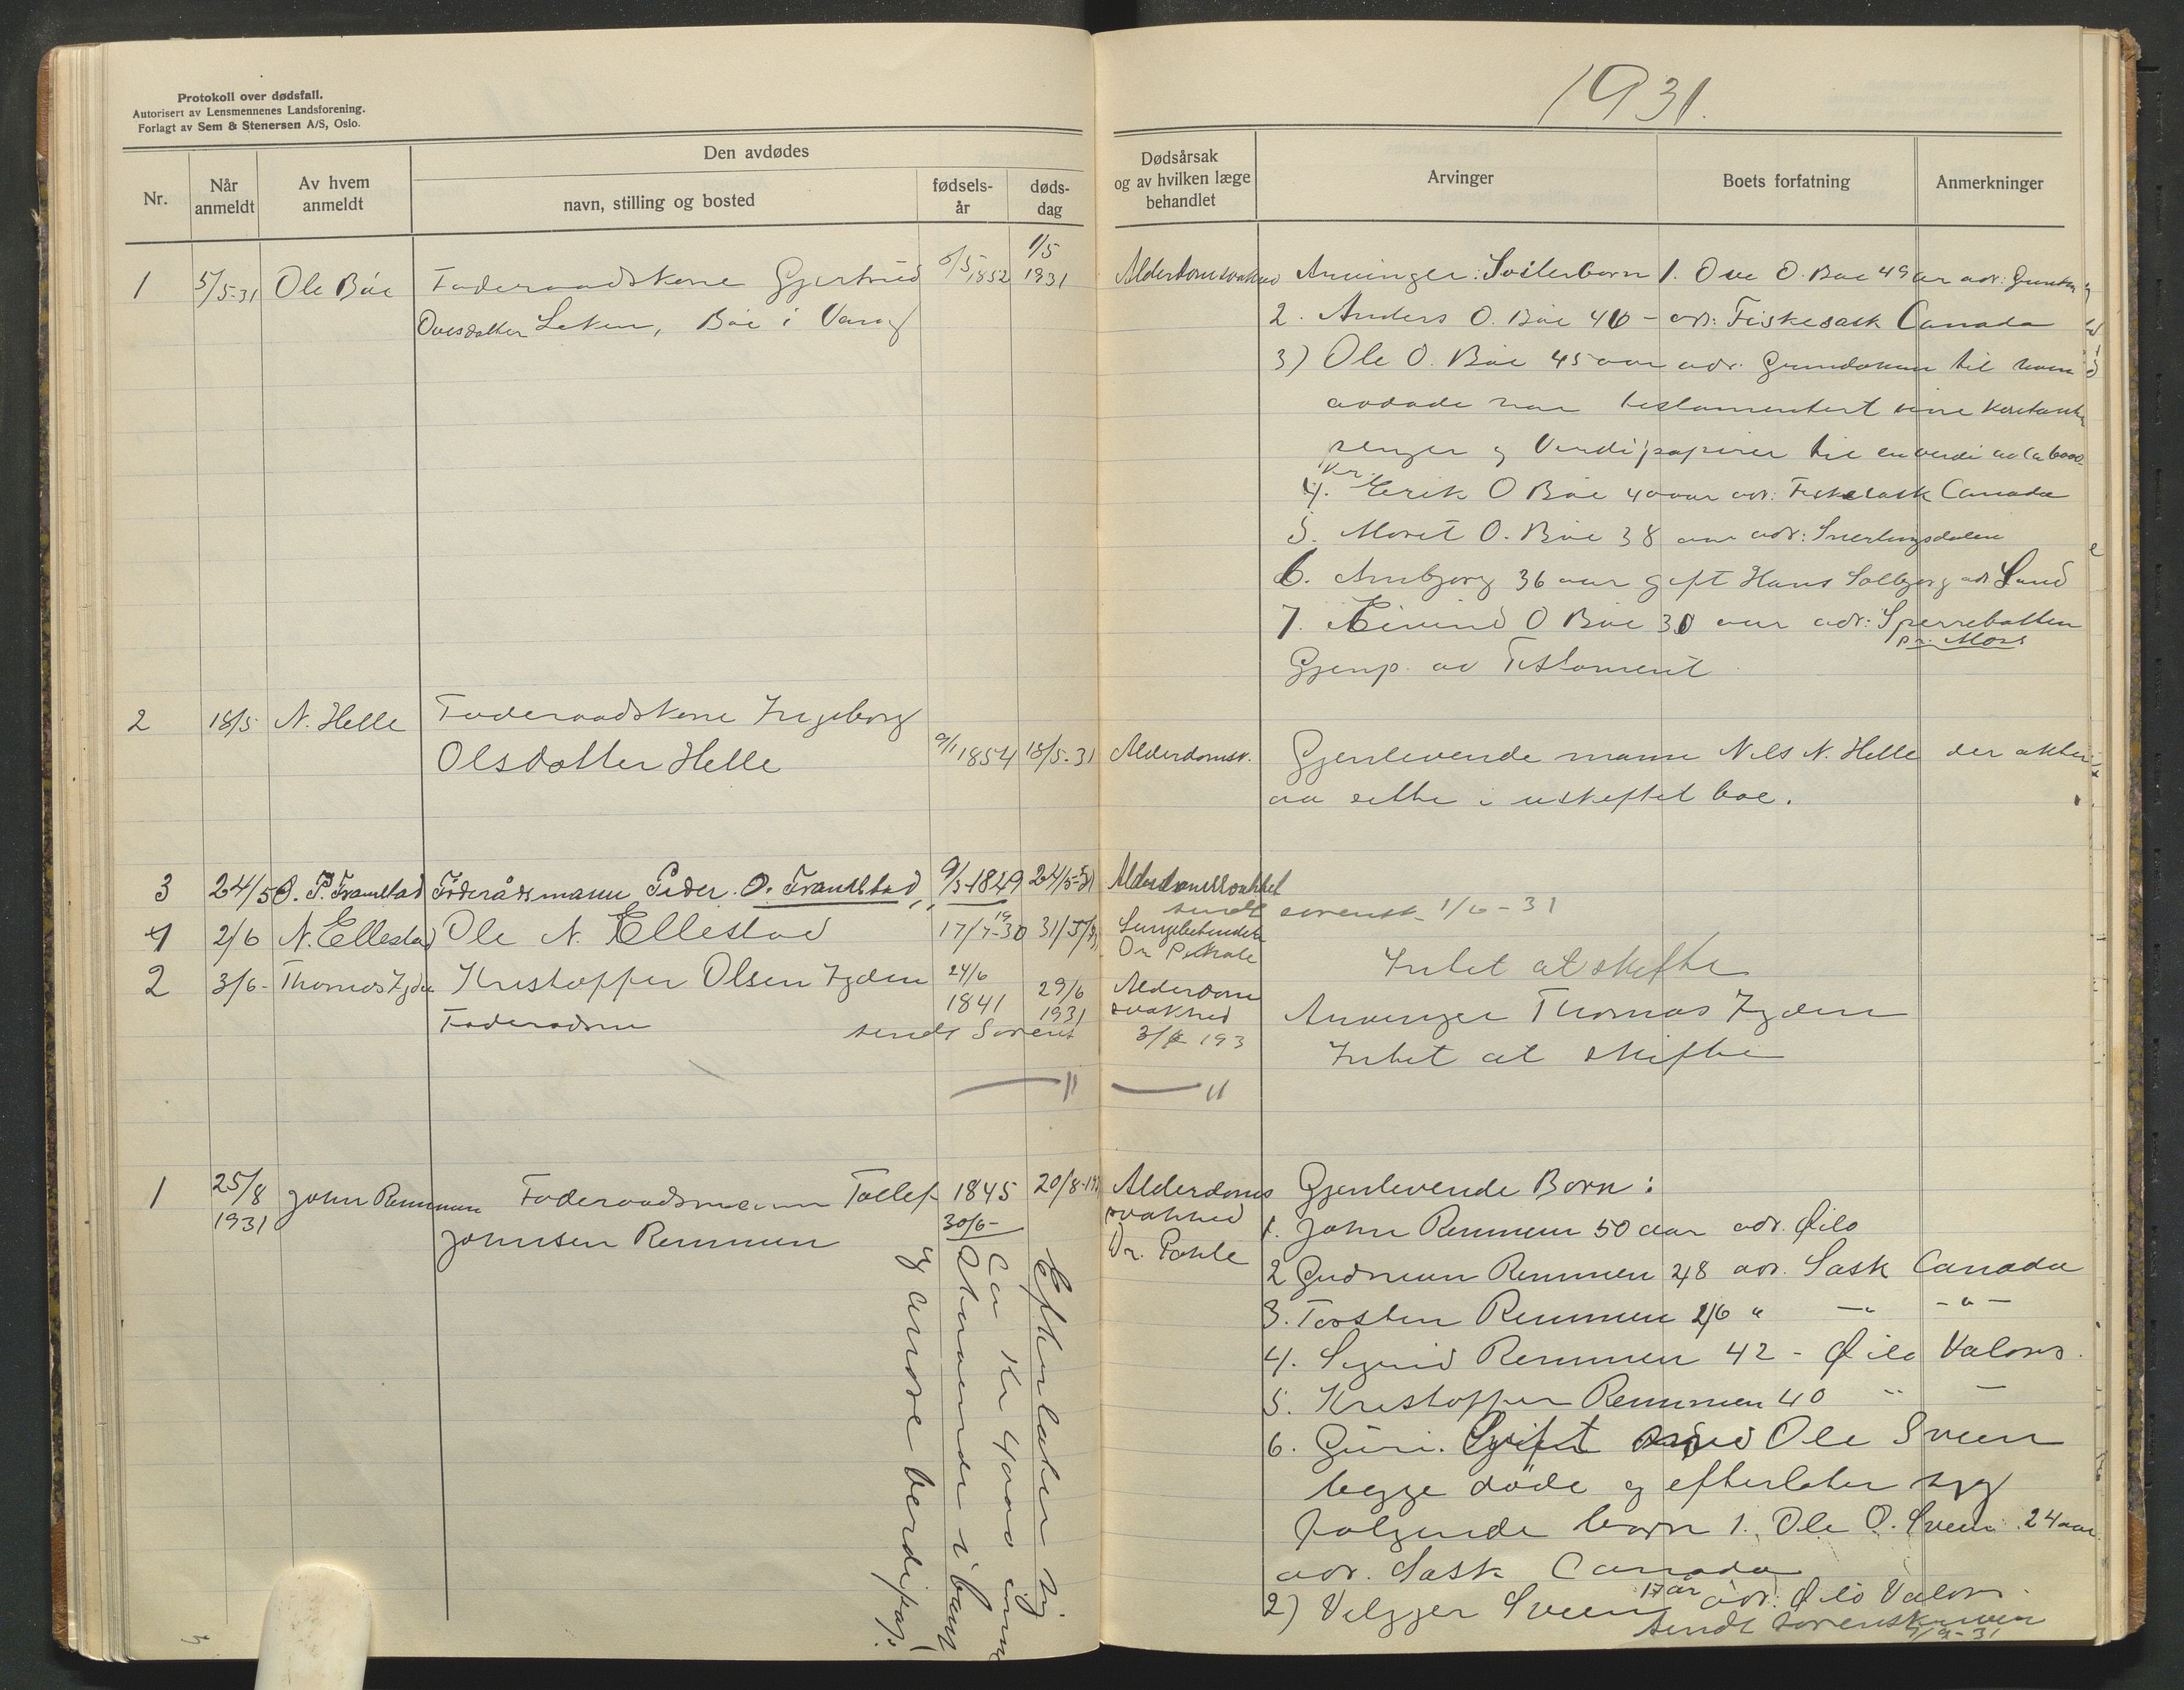 Protokoll over dødsfall.
Autorisert av Lensmennenes Landsforening.
Forlagt av Sem & Stenersen A/S, Oslo.
1931.
Nr.
Når anmeldt
Av hvem anmeldt
Den avdødes
navn, stilling og bosted
fødsels-år
døds-dag
Dødsårsak og av hvilken læge behandlet
Arvinger
Boets forfatning
Anmerkninger
1 5/5-31 Ole Böe Foderaadskone Gjertrud 1852 1/5 1931 Alderdomsvakhed
Ovesdatter Leken, Böe i Vang
Arvinger: Sösterborn 1. Ove O. Böe 49 aar adr:
2. Anders O. Böe 46 - adr: Fiskesask Canada
3) Ole O. Böe 45 aar adr. til hvem
avdøde har testamentert sine kontanter
penger og Verdipapirer til en verdi av ca 6000
Kr.
4. Erik O Böe 40 aar adr: Fiskesask Canada
5. Marit O. Böe 38 aar adr: Snertingsdalen
6. Annbjorg 36 aar gift Hans Solbjorg adr. Land
7. Eivind O Böe 30 aar adr: Sperrebotten
pr. Moss
Gjenp. av Testament
2 18/5 N. Helle Foderaadskone Ingeborg
Olsdatter Helle 9/1 1854 18/5-31 Alderdomsv. Gjenlevende mann Nils N. Helle der akter
aa sitte i uskiftet boe.
3 24/5 O. P. Framstad Föderådsmann Peder. O. Framstad 9/3-1849 24/5-31 Alderdomssvakhet
sendt sorensk. 1/6-31
4 2/6 N. Ellestad Ole N. Ellestad 17/7-1930 31/5/31 Lungebetendelse
Dr Pekale
Intet at skifte
2 3/6- Thomas Igden Kristoffer Olsen Igden 24/6 1841 29/6 1931 Alderdom svakhed
Foderadsm
sendt Sorensk 3/6 193
Arvinger Thomas Igden
Intet at skifte
1 25/8 1931 John Remmen Foderaadsmann Tollef 1845 20/8-193 Alderdoms svakhed
Johnsen Remmen 30/6- Dr. Pahle
Efterlater sig
ca Kr 4000 inne
staaende i bank
og andre verdipap.
Gjenlevende Born:
1. John Remmen 50 aar adr. Øilo
2 Gudmun Remmen 48 adr. Sask Canada
3. Torsten Remmen 46 " -"- -"-
4. Sigrid Remmen 42 - Øilo Valdres.
5. Kristoffer Remmen 40 " -
6. Guri. Gift med Ole Sveen
begge døde og efterlater seg
folgende born 1. Ole O. Sveen 24 aar.
adr. Sask Canada
2) Sveen 17 år adr. Øilo Valdres
sendt sorenskriveren
1/9-31